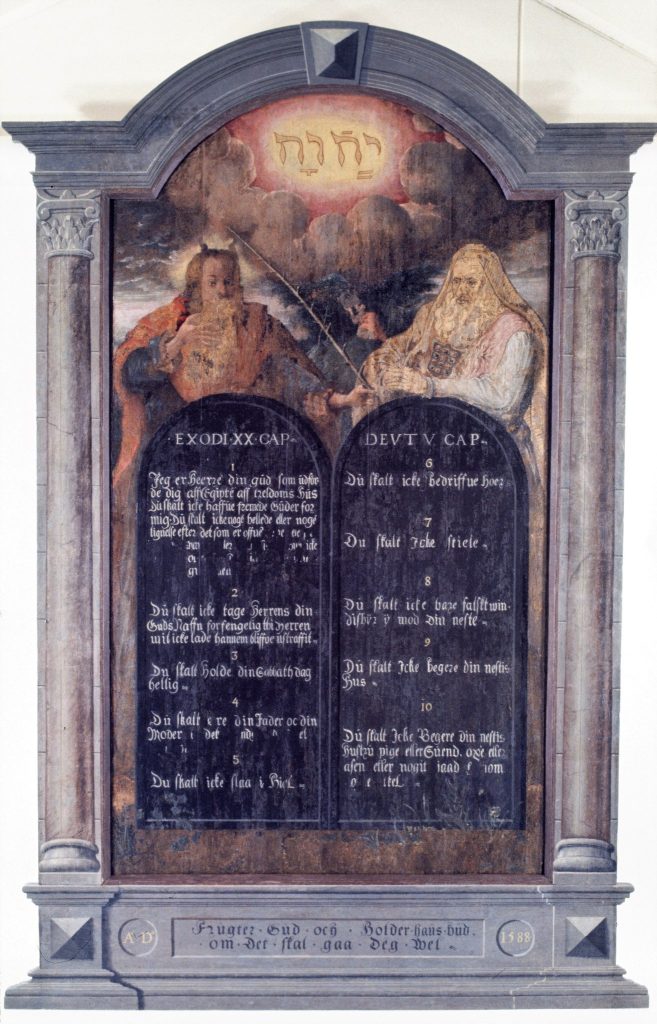 יְהֹוָה
EXODI·XX·CAP·
1
Jeg er Herre din gud som udfør
de dig aff Egipte aff treldoms Hus
Du skalt icke haffue fremede Guder for
mig. Du skalt icke nogē bellede eller nogē
lignelse efter det som er offue
2
Du skalt icke tage Herrens din
Guds Naffn forfengelig thi Herren
wil icke lade hannem bliffue ustraffit
3
Du skalt Holde din Sabbath dag
hellig
4
Du skalt ere din Fader oc din
Moder i det
5
Du skalt icke slaa i Hiel
DEVT V CAP·
6
Du skalt icke bedriffue Hoer
7
Du skalt Icke stiele
8
Du skalt icke bære falskt win-
disbyr y mod din neste
9
Du skalt Icke begere din nestis
Hus
10
Du skalt Icke Begere din nestis
hustru pige eller Suend oxe eller
asen eller nogit
A·D·
Frugter·Gud·och·Holder·hans·bud·
·om·det·skal·gaa·deg·wel·
1588